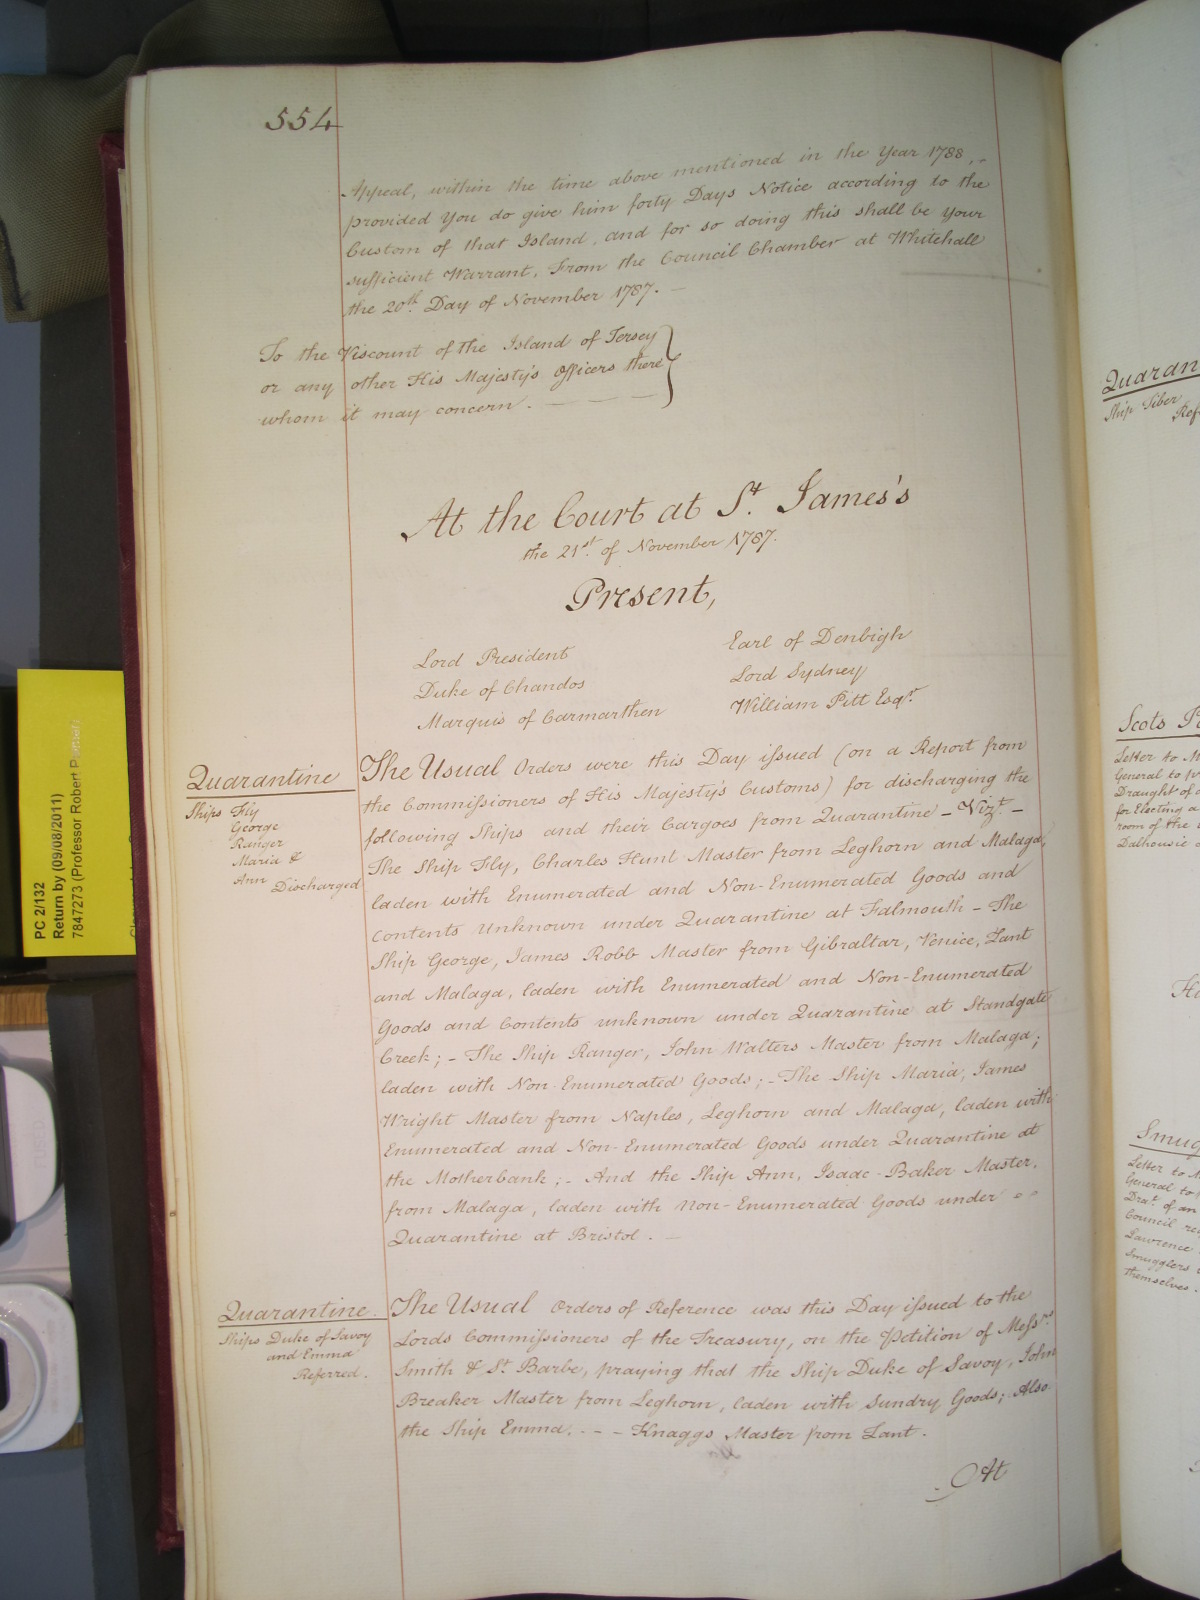 554
Appeal, within the time above mentioned in the Year 1788, -
provided You do give him forty Days Notice according to the
Custom of that Island, and for so doing this shall be your
sufficient Warrant. From the Council Chamber at Whitehall
the 20th. Day of November 1787. -
To the Viscount of the Island of Jersey
or any other His Majesty's Officers there
whom it may concern. - - -
At the Court at St. James's
the 21st. of November 1787.
Present,
Lord President
Duke of Chandos
Marquis of Carmarthen
Earl of Denbigh
Lord Sydney
William Pitt Esqr.
Quarantine
Ships Fly
George
Ranger
Maria &
Ann Discharged
The Usual Orders were this Day issued (on a Report from
the Commissioners of His Majesty's Customs) for discharging the
following Ships and their Cargoes from Quarantine - Vizt. -
The Ship Fly, Charles Hunt Master from Leghorn and Malaga,
laden with Enumerated and Non-Enumerated Goods and
Contents unknown under Quarantine at Falmouth - The
Ship George, James Robb Master from Gibraltar, Venice, Zant
and Malaga, laden with Enumerated and Non-Enumerated
Goods and Contents unknown under Quarantine at Standgate
Creek; - The Ship Ranger, John Walters Master from Malaga;
laden with Non-Enumerated Goods; - The Ship Maria, James
Wright Master from Naples, Leghorn and Malaga, laden with
Enumerated and Non-Enumerated Goods under Quarantine at
the Motherbank; - And the Ship Ann, Isaac Baker Master,
from Malaga, laden with Non-Enumerated Goods under
Quarantine at Bristol. -
Quarantine.
Ships Duke of Savoy
and Emma
Referred.
The Usual Orders of Reference was this Day issued to the
Lords Commissioners of the Treasury, on the Petition of Messrs
Smith & St. Barbe, praying that the Ship Duke of Savoy, John
Breaker Master from Leghorn, laden with Sundry Goods; Also
the Ship Emma, - - - Knaggs Master from Zant.
At
PC 2/132
Return by (09/08/2011)
7847273 (Professor Robert
Quaran
Ship Tiber
Ref
Scots P
Letter to
General to
Draught of
for Electing a
room of the
Dalhousie
Smug
Letter to
General to
Drat. of an
Council
Lawrence
Smugglers
themselves.